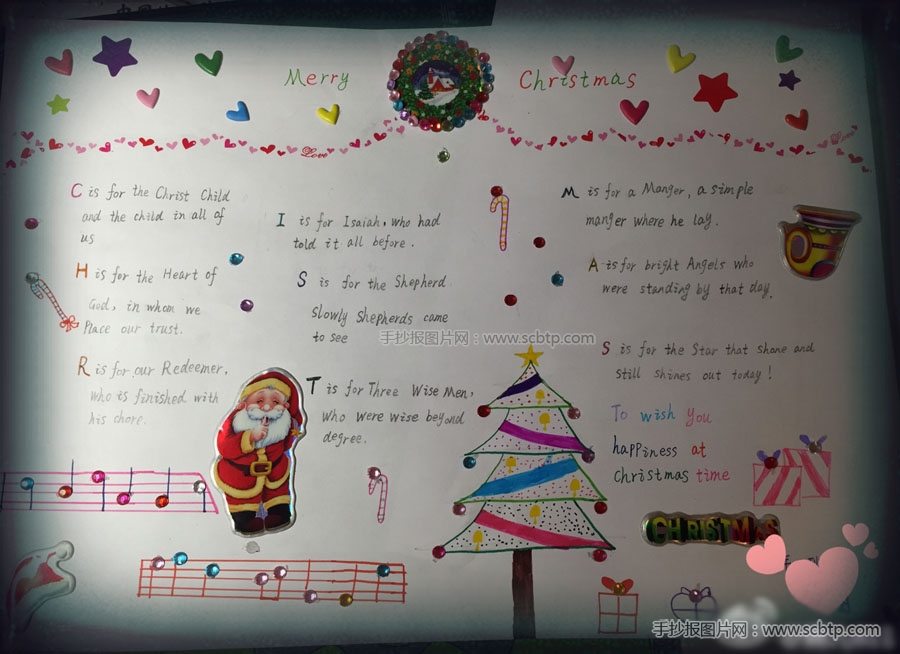 Merry Christmas
Love
Love
C is for the Christ Child
and the child in all of
us
H is for the Heart of
God, in whom we
Place our trust.
R is for our Redeemer,
who is finished with
his chore.
I is for Isaiah, who had
told it all before.
S is for the Shepherd
Slowly Shepherds came
to see
T is for Three Wise Men,
who were wise beyond
degree.
M is for a Manger, a simple
manger where he lay.
A is for bright Angels who
were standing by that day.
S is for the Star that shone and
still shines out today!
To wish you
happiness at
Christmas time
CHRISTMAS
手抄报图片网：www.scbtp.com
手抄报图片网：www.scbtp.com